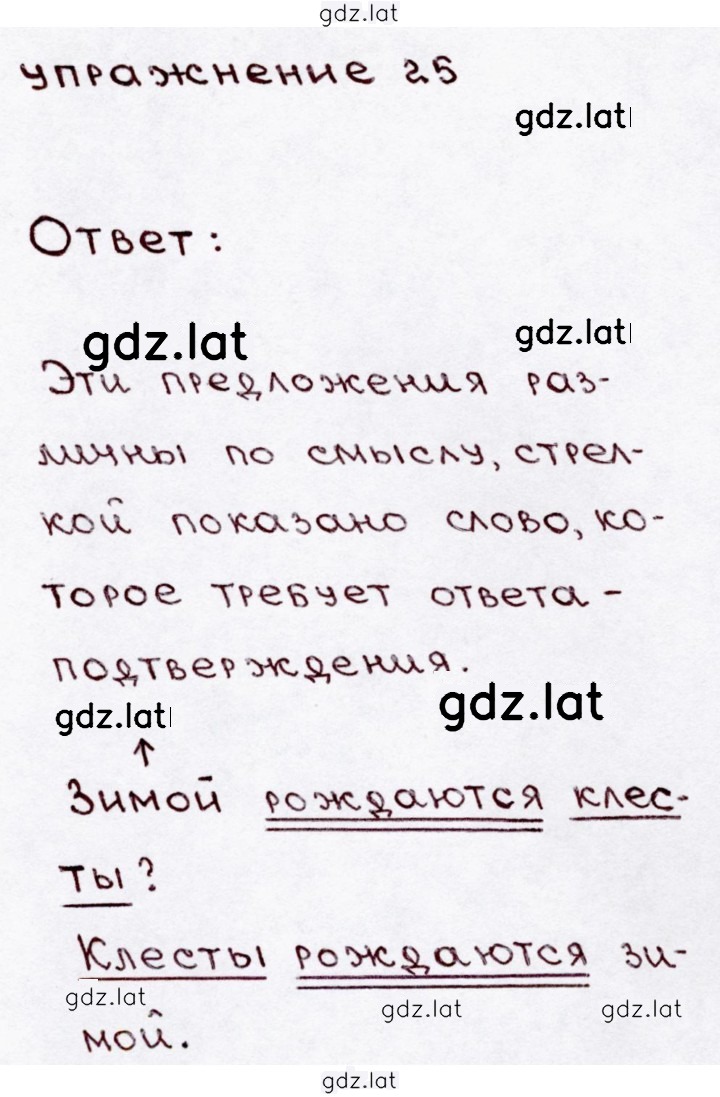 gdz.lat
упражнение 25
gdz.lat
Ответ:
gdz.lat
gdz.lat
Эти предложения раз-
личны по смыслу, стрел-
кой показано слово, ко-
торое требует ответа -
подтверждения.
gdz.lat
gdz.lat
↑
Зимой рождаются клес-
ты?
Клесты рождаются зи-
gdz.lat
gdz.lat
gdz.lat
мой.
gdz.lat